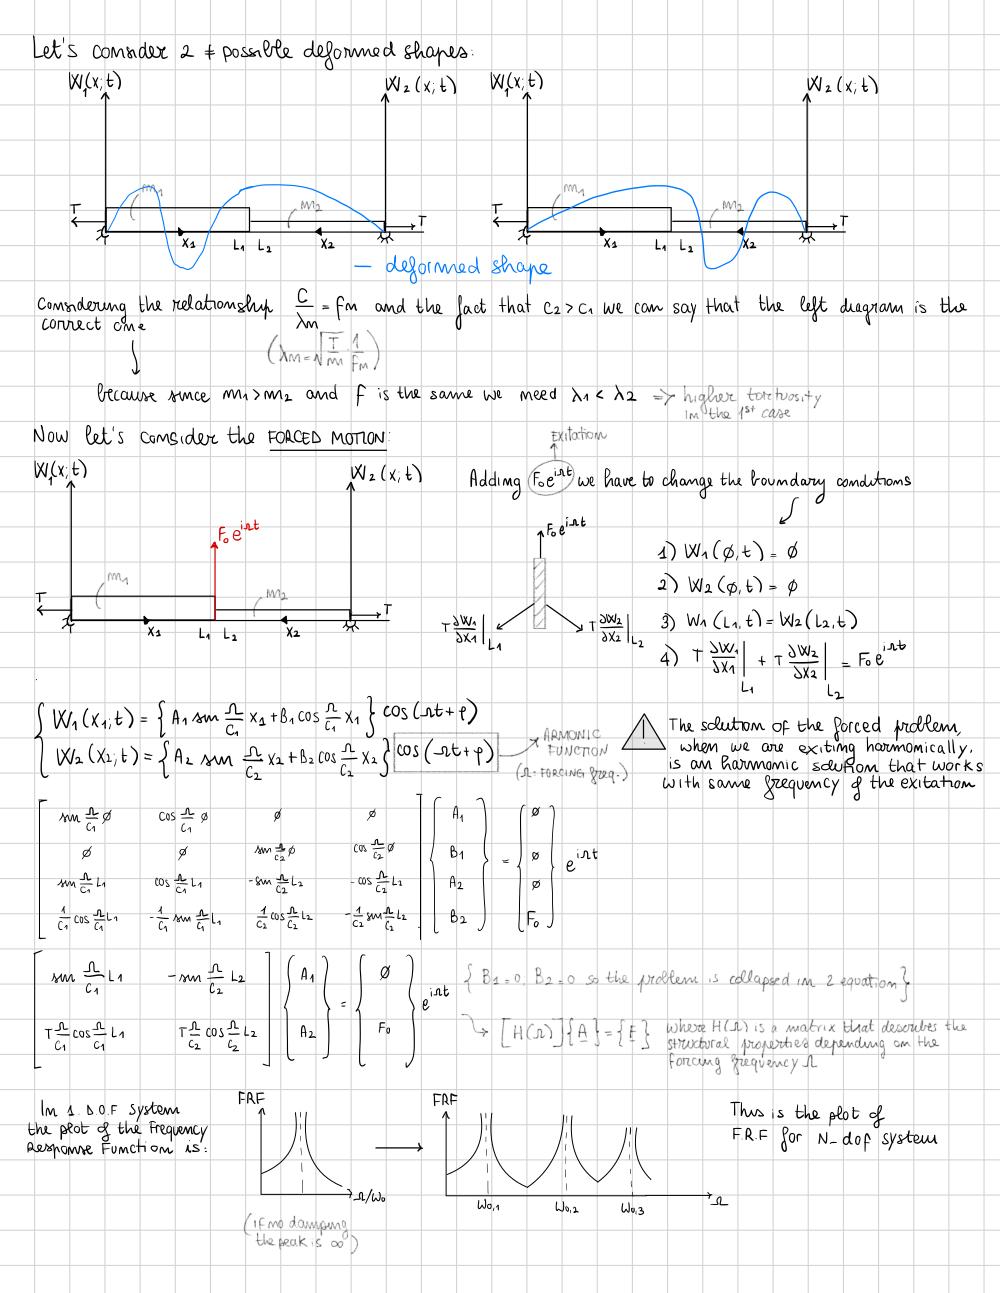 Let's consider 2 ≠ possible deformed shapes:
W₁(x;t) W₂(x;t) W₁(x;t) W₂(x;t)
m₁ m₂ m₁ m₂
T T T T
x₁ L₁ L₂ x₂ x₁ L₁ L₂ x₂
— deformed shape
Considering the relationship c/λm = fm and the fact that c₂>c₁ we can say that the left diagram is the
correct one
(λm = √(T/m) · 1/fm)
because since m₁>m₂ and f is the same we need λ₁ < λ₂ => higher tortuosity
in the 1st case
Now let's consider the FORCED MOTION:
Exitation
W₁(x;t) W₂(x;t)
Adding F₀e^(iΩt) we have to change the boundary conditions
F₀e^(iΩt)
F₀e^(iΩt)
m₁ m₂
T T
x₁ L₁ L₂ x₂
T ∂W₁/∂x₁|L₁ T ∂W₂/∂x₂|L₂
1) W₁(ø,t) = ø
2) W₂(ø,t) = ø
3) W₁(L₁,t) = W₂(L₂,t)
4) T ∂W₁/∂x₁|L₁ + T ∂W₂/∂x₂|L₂ = F₀e^(iΩt)
W₁(x₁;t) = {A₁ sin Ω/c₁ x₁ + B₁ cos Ω/c₁ x₁} cos(Ωt+φ)
W₂(x₂;t) = {A₂ sin Ω/c₂ x₂ + B₂ cos Ω/c₂ x₂} cos(Ωt+φ)
ARMONIC
FUNCTION
(Ω = FORCING freq.)
The solution of the forced problem,
when we are exiting harmonically,
is an harmonic solution that works
with same frequency of the exitation
sin Ω/c₁ ø cos Ω/c₁ ø ø ø A₁ ø
ø ø sin Ω/c₂ ø cos Ω/c₂ ø B₁ = ø e^(iΩt)
sin Ω/c₁ L₁ cos Ω/c₁ L₁ -sin Ω/c₂ L₂ -cos Ω/c₂ L₂ A₂ ø
1/c₁ cos Ω/c₁ L₁ -1/c₁ sin Ω/c₁ L₁ 1/c₂ cos Ω/c₂ L₂ -1/c₂ sin Ω/c₂ L₂ B₂ F₀
sin Ω/c₁ L₁ -sin Ω/c₂ L₂ A₁ = ø e^(iΩt)
T Ω/c₁ cos Ω/c₁ L₁ T Ω/c₂ cos Ω/c₂ L₂ A₂ F₀
{B₁=0, B₂=0 so the problem is collapsed in 2 equation}
[H(Ω)]{A} = {F} where H(Ω) is a matrix that describes the
structural properties depending on the
forcing frequency Ω
In 1 D.O.F system
the plot of the Frequency
Response Function is:
FRF
Ω/ω₀
(if no damping
the peak is ∞)
FRF
ω₀,₁ ω₀,₂ ω₀,₃ Ω
This is the plot of
F.R.F for N-dof system